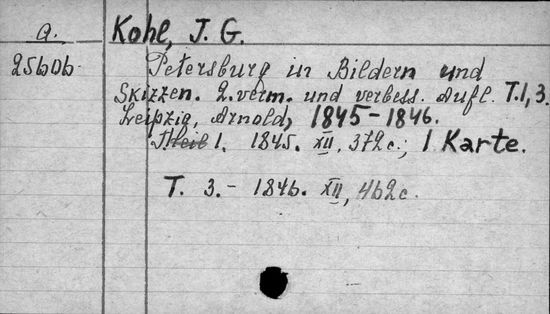 a. Kohl, J. G.
25606 Petersburg in Bildern und
Skizzen. 2. verm. und verbess. Aufl. T.1,3.
Leipzig, Arnold, 1845-1846.
Theil 1. 1845. XII, 372 c.; 1 Karte.
T. 3.- 1846. XII, 462 c.